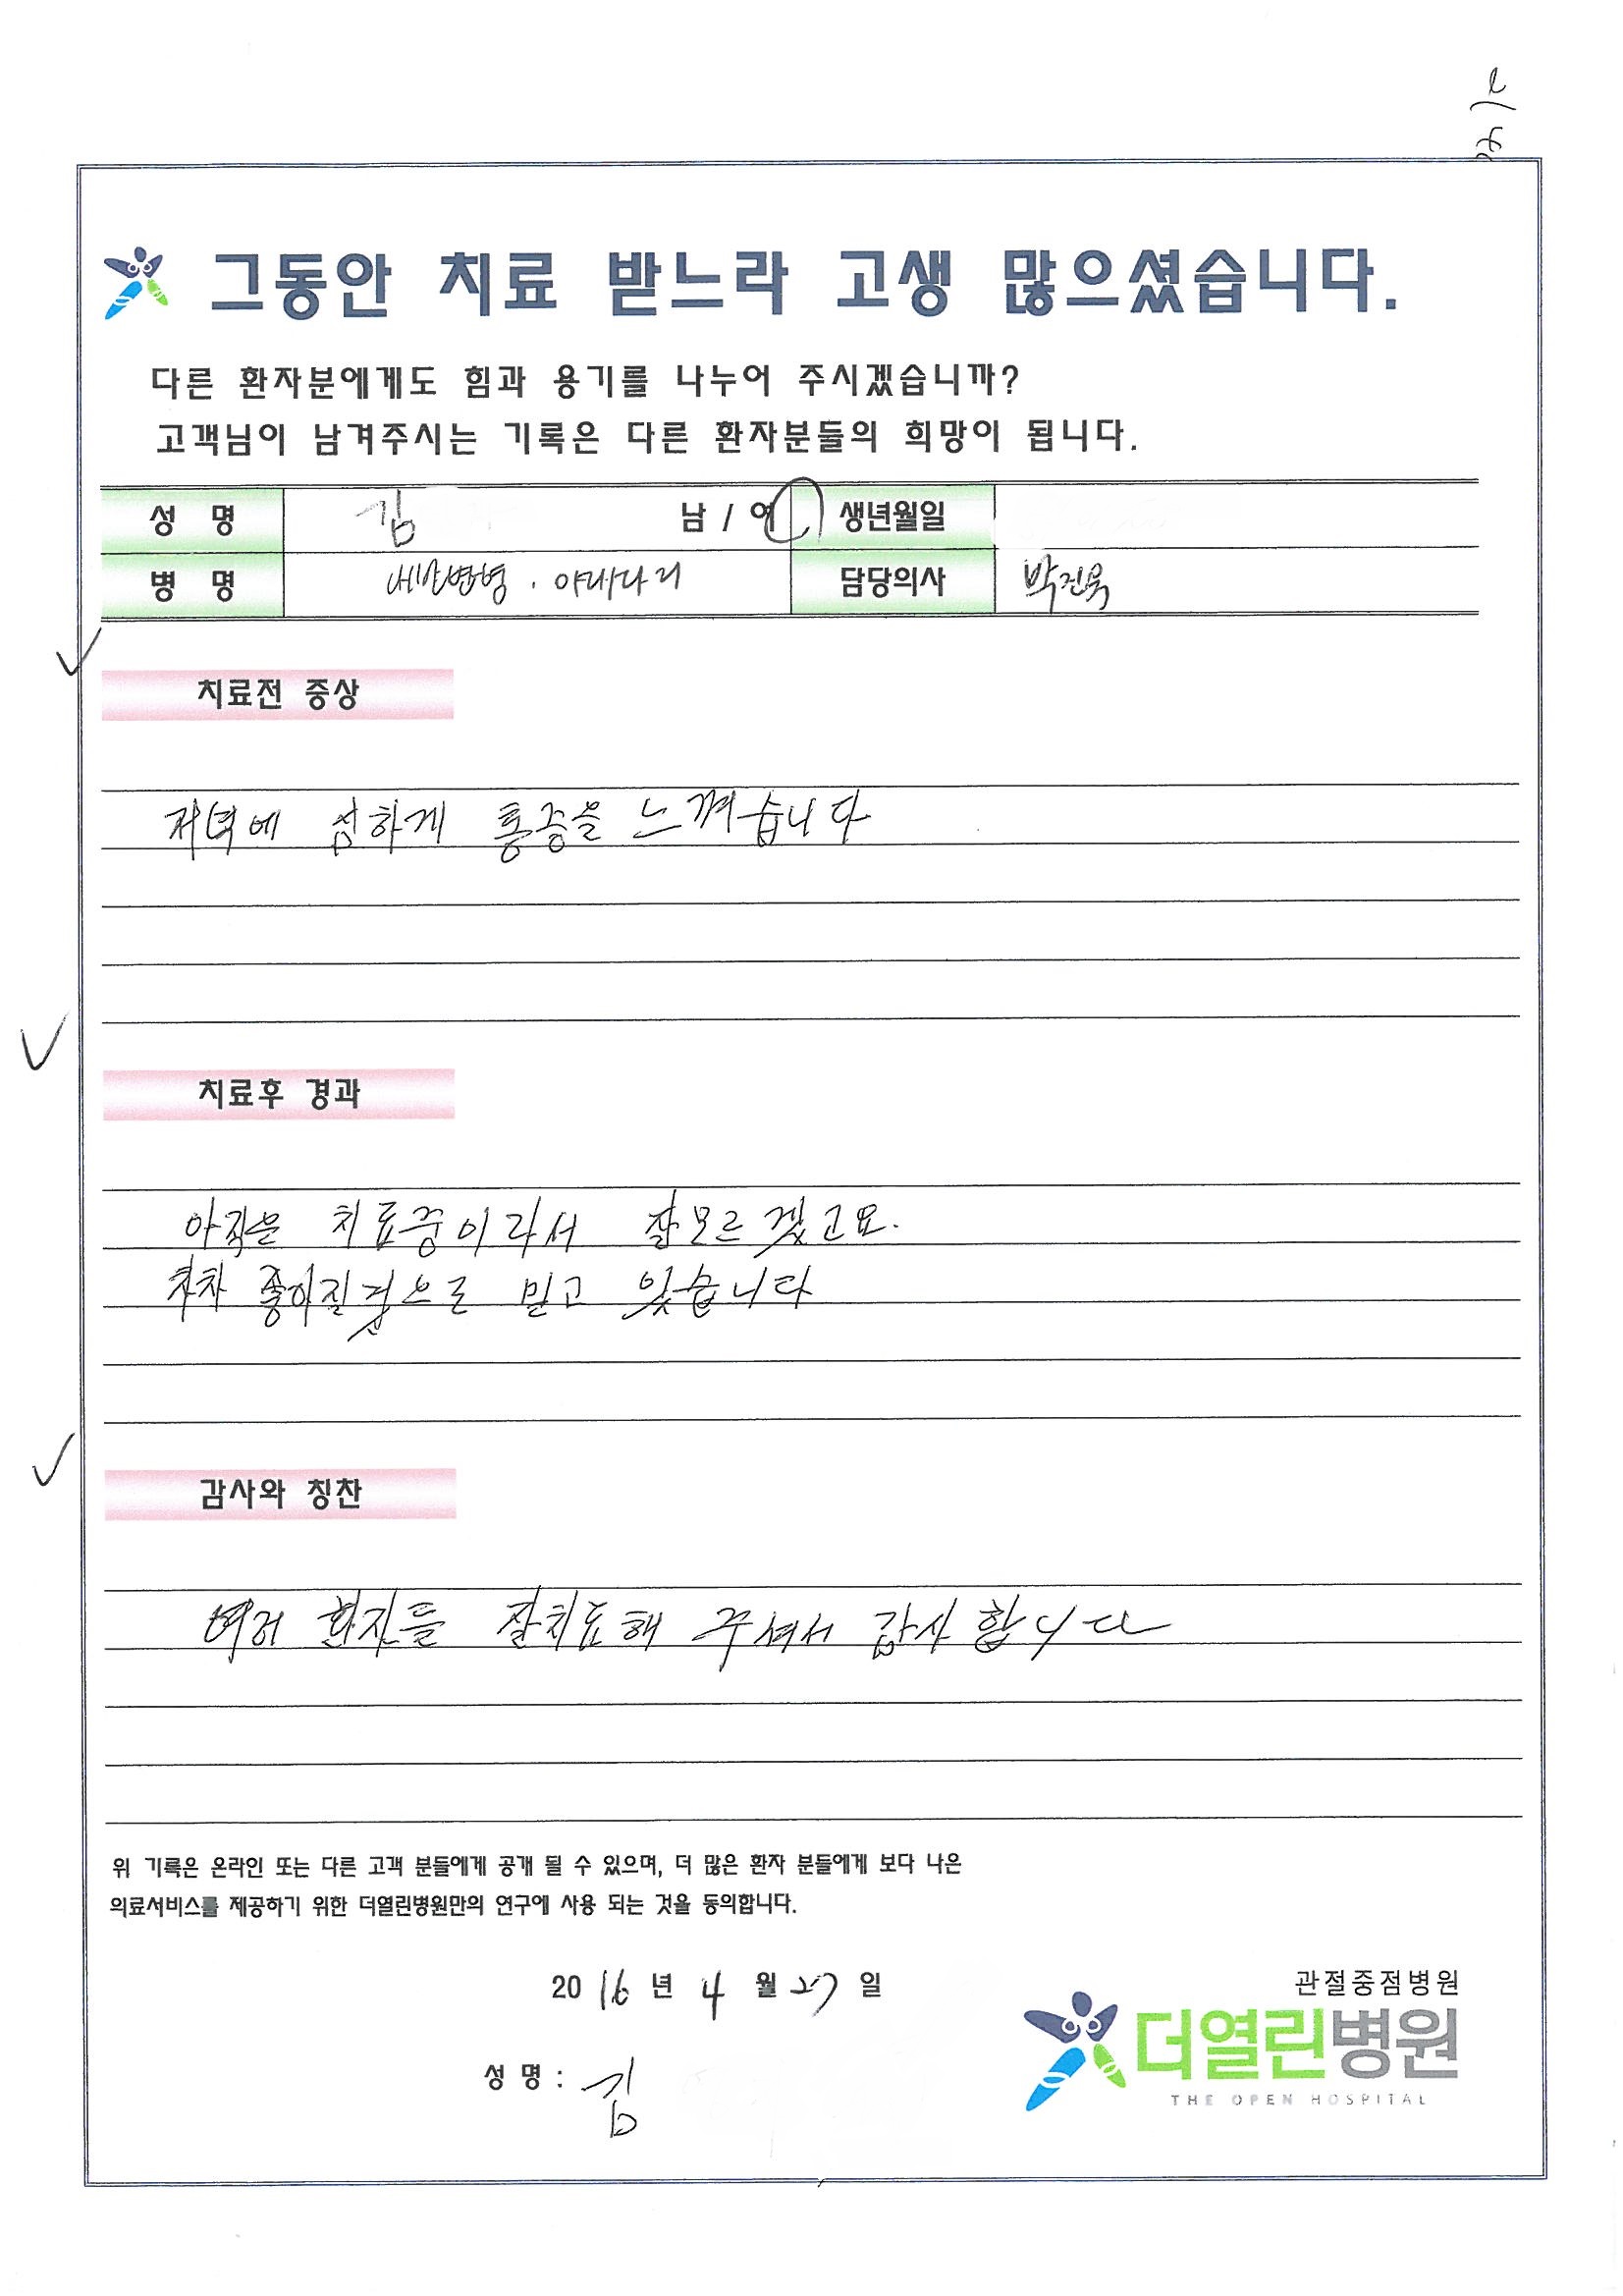 그동안 치료 받느라 고생 많으셨습니다.
다른 환자분에게도 힘과 용기를 나누어 주시겠습니까?
고객님이 남겨주시는 기록은 다른 환자분들의 희망이 됩니다.
성 명 김 남 / 여 생년월일
병 명 내반변형 . 아래다리 담당의사 박진욱
치료전 증상
저녁에 심하게 통증을 느껴습니다
치료후 경과
아직은 치료중이라서 잘모르겠고요.
차차 좋아질겆으로 믿고 잇습니다
감사와 칭찬
여러 환자들 잘치료해 주셔서 감사합니다
위 기록은 온라인 또는 다른 고객 분들에게 공개 될 수 있으며, 더 많은 환자 분들에게 보다 나은
의료서비스를 제공하기 위한 더열린병원만의 연구에 사용 되는 것을 동의합니다.
2016 년 4 월 27 일
관절중점병원
더열린병원
THE OPEN HOSPITAL
성 명 : 김